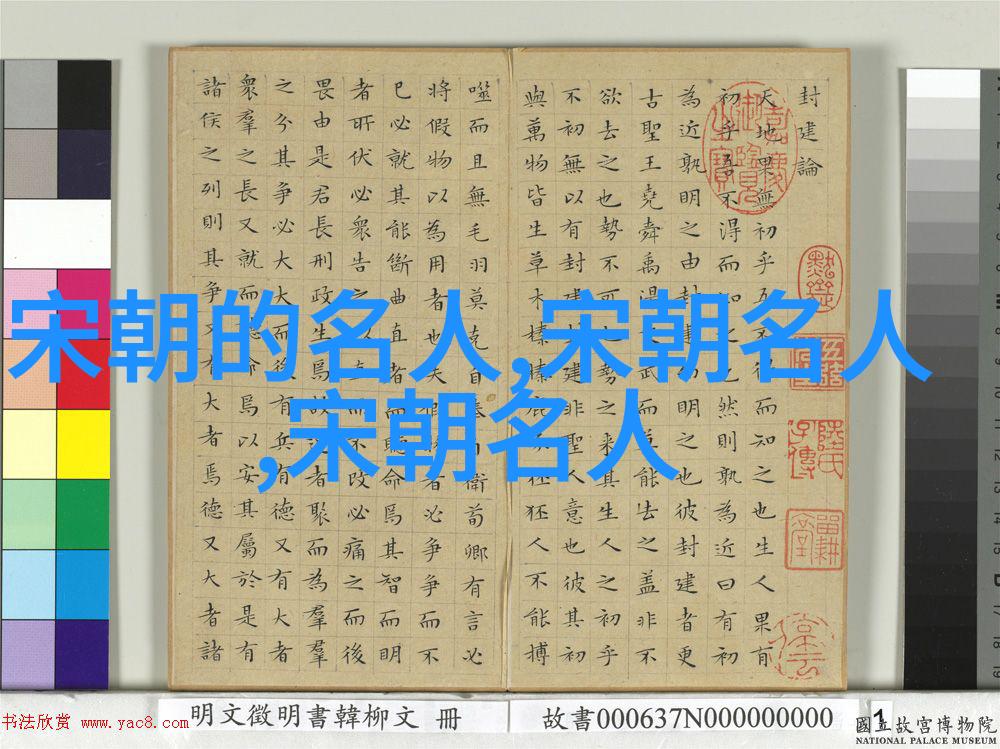 封建論
天地果無初乎吾不得而知之也生人果有
初乎吾不得而知之也然則孰為近曰有初
為近孰明之由封建 明之也彼封建者更
古聖王堯舜禹湯文武而莫能去之蓋非不
欲去之也勢不可也勢之來其生人之初乎
不初無以有封建封建非聖人意也彼其初
與萬物皆生草木榛榛鹿豕狉狉人不能搏
噬而且無毛羽莫克自奉自衛荀卿有言必
將假物以為用者也夫假物者必爭爭而不
已必就其能斷曲直者而聽命焉其智而明
者所伏必衆告之以直而不改必痛之而後
畏由是君長刑政生焉故近者聚而為羣
之分其爭必大大而後有兵有德又有大者
衆羣之長又就而聽命焉以安其屬於是有
諸侯之列則其爭又有大者焉德又大者諸
宋朝的名人,宋朝名人
,宋朝名人
书法欣赏 www.yac8.com
明文徵明書韓柳文 冊
故書000637N000000000
1
國立故宮博物院
NATIONAL PALACE MUSEUM